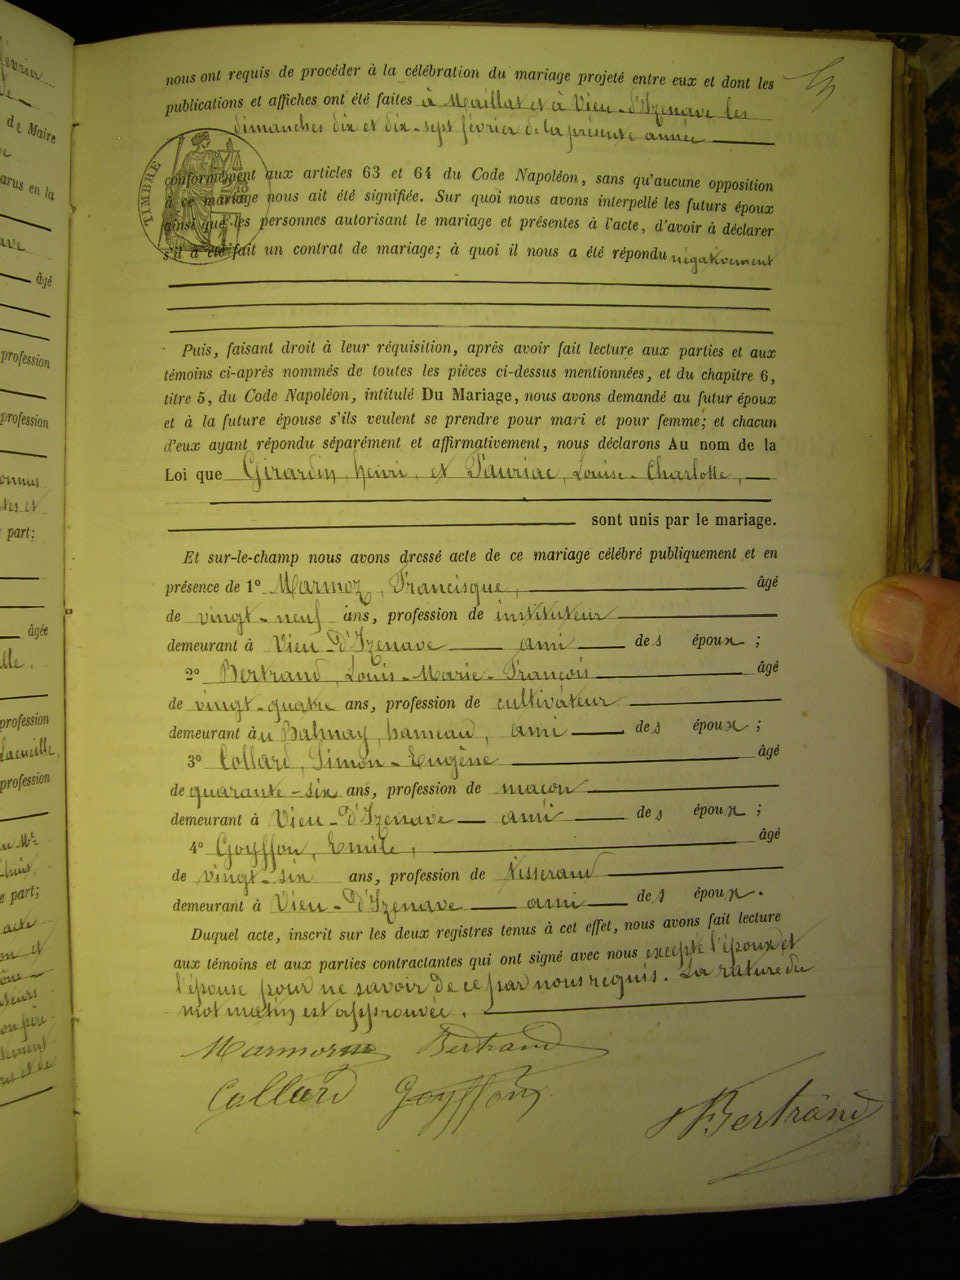 nous ont requis de procéder à la célébration du mariage projeté entre eux et dont les
publications et affiches ont été faites à Maillat et à Vieu-d'Izenave les
dimanches dix et dix-sept février de la présente année
TIMBRE
conformément aux articles 63 et 64 du Code Napoléon, sans qu'aucune opposition
à ce mariage nous ait été signifiée. Sur quoi nous avons interpellé les futurs époux
ainsi que les personnes autorisant le mariage et présentes à l'acte, d'avoir à déclarer
s'il a été fait un contrat de mariage; à quoi il nous a été répondu négativement
Puis, faisant droit à leur réquisition, après avoir fait lecture aux parties et aux
témoins ci-après nommés de toutes les pièces ci-dessus mentionnées, et du chapitre 6,
titre 5, du Code Napoléon, intitulé Du Mariage, nous avons demandé au futur époux
et à la future épouse s'ils veulent se prendre pour mari et pour femme; et chacun
d'eux ayant répondu séparément et affirmativement, nous déclarons Au nom de la
Loi que Girardin, henri, et Dauriac, Louise-Charlotte,
sont unis par le mariage.
Et sur-le-champ nous avons dressé acte de ce mariage célébré publiquement et en
présence de 1° Marmoz, Francisque, âgé
de vingt-neuf ans, profession de instituteur
demeurant à Vieu-d'Izenave ami des époux ;
2° Bertrand, Louis-Marie-François âgé
de vingt-quatre ans, profession de cultivateur
demeurant au Balmay, hameau, ami des époux ;
3° Collard, Simon-Eugène âgé
de quarante-six ans, profession de maçon
demeurant à Vieu-d'Izenave ami des époux ;
4° Goyffon, Emile, âgé
de vingt-six ans, profession de tisserand
demeurant à Vieu-d'Izenave ami des époux.
Duquel acte, inscrit sur les deux registres tenus à cet effet, nous avons fait lecture
aux témoins et aux parties contractantes qui ont signé avec nous excepté l'époux et
l'épouse pour ne savoir de ce par nous requis. La rature du
mot matin est approuvée.
Marmoz Bertrand
Collard Goyffon
Bertrand
de Maire
âgé
profession
profession
part;
âgée
profession
profession
part;